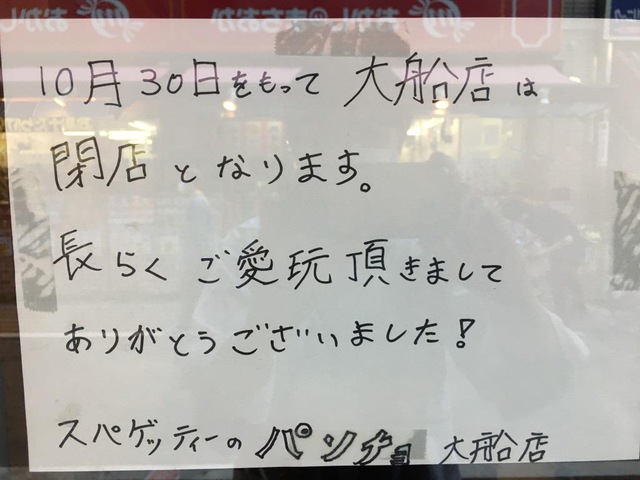 10月30日をもって 大船店は
閉店となります。
長らくご愛玩頂きまして
ありがとうございました!
スパゲッティーのパンチョ 大船店